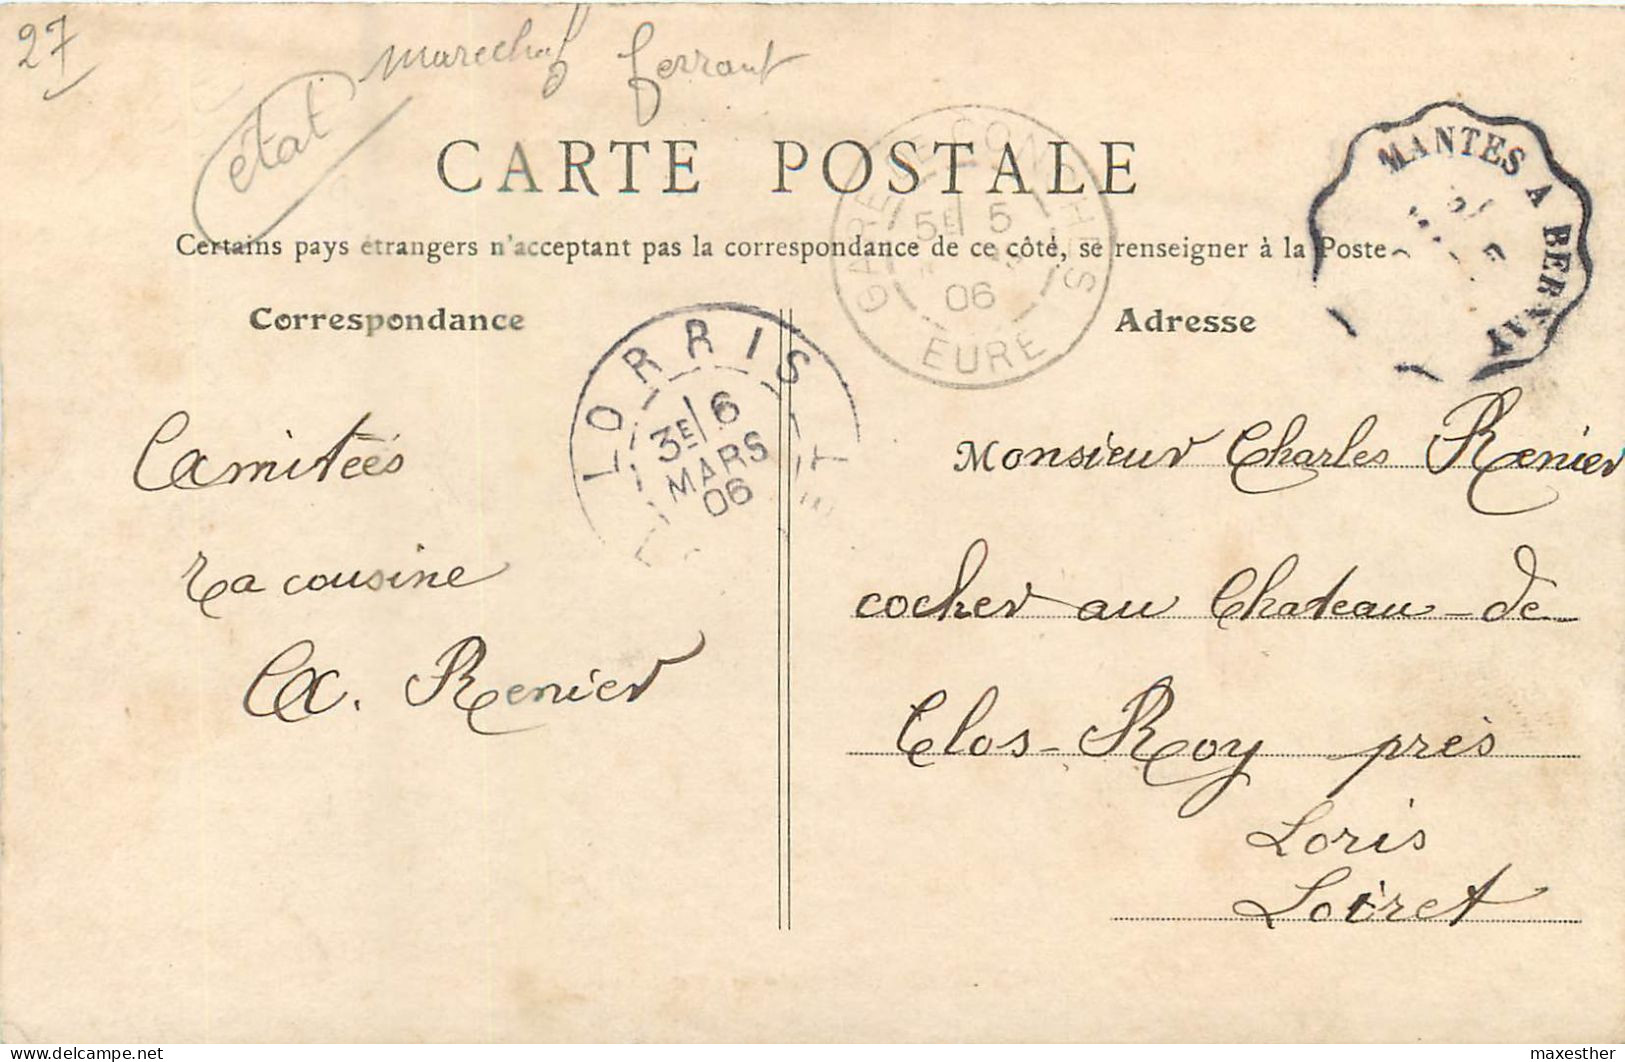 27
marechal ferrant
état
CARTE POSTALE
Certains pays étrangers n'acceptant pas la correspondance de ce côté, se renseigner à la Poste
Correspondance
Adresse
GARE DE CONCHES
5E 5
06
EURE
MANTES A BERNAY
LORRIS
3E 6
MARS
06
Amitées
ta cousine
A. Renier
Monsieur Charles Renier
cocher au Chateau-de
Clos-Roy près
Loris
Loiret
maxesther